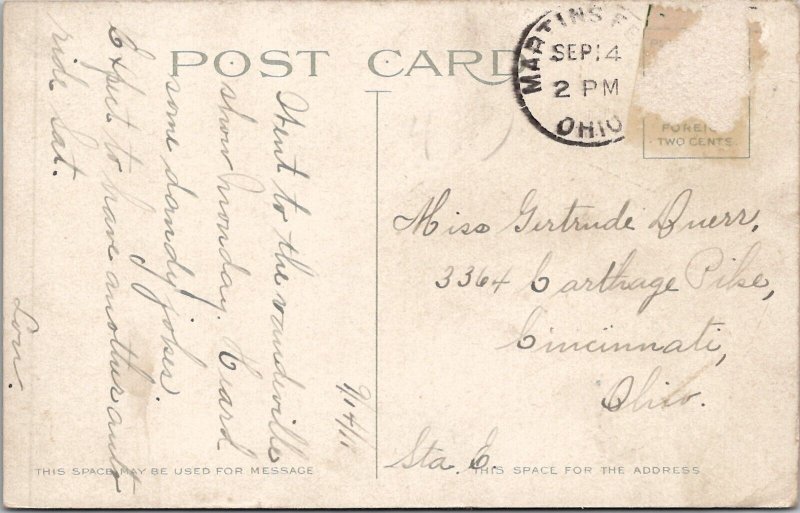 POST CARD
MARTINS F
SEP 14
2 PM
OHIO
FOREIGN
TWO CENTS
9/14/11
Went to the vaudeville
show Monday. Heard
some dandy jokes
Expect to have another auto
ride Sat.
Miss Gertrude Duerr,
3364 Carthage Pike,
Cincinnati,
Ohio.
Sta. E.
THIS SPACE MAY BE USED FOR MESSAGE
THIS SPACE FOR THE ADDRESS